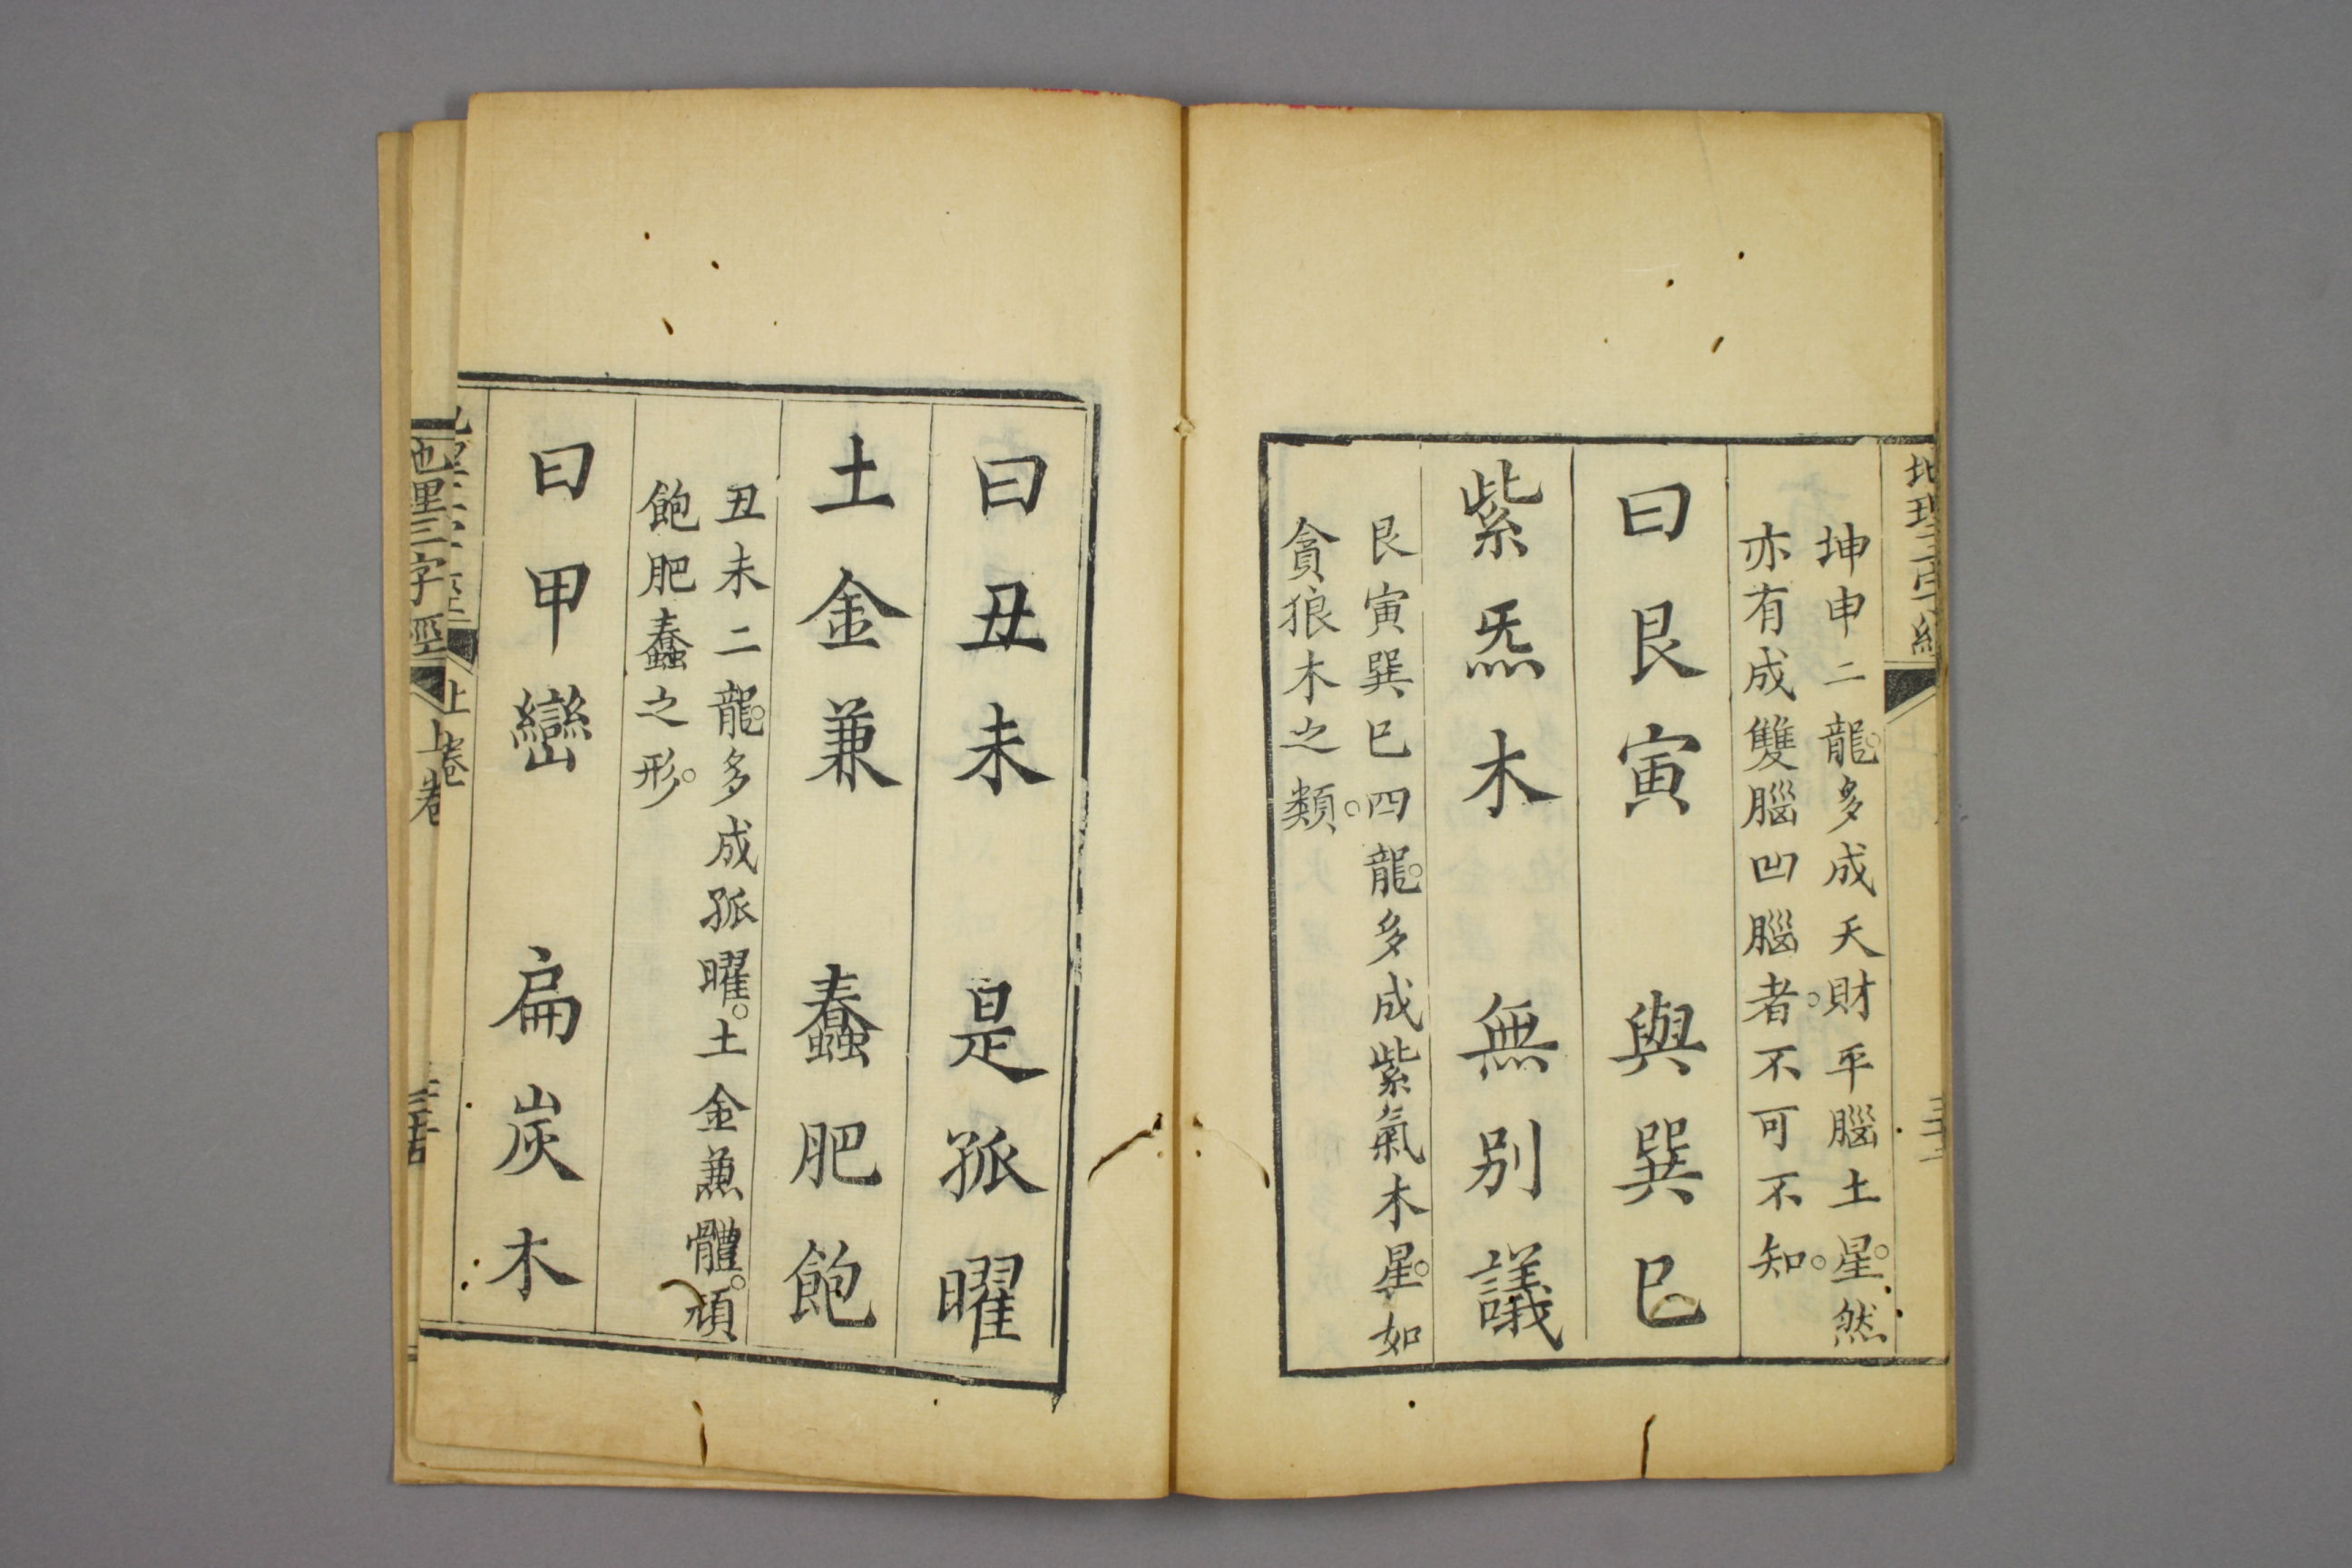 地理三字經
坤申二龍。多成天財平腦土星。然
亦有成雙腦凹腦者。不可不知。
曰艮寅　與巽巳
紫炁木　無別議
艮寅巽巳四龍。多成紫氣木星。如
貪狼木之類。
曰丑未　是孤曜
土金兼　蠢肥飽
丑未二龍。多成孤曜。土金兼體。頑
飽肥蠢之形。
曰甲巒　扁炭木
上卷
地理三字經
上卷